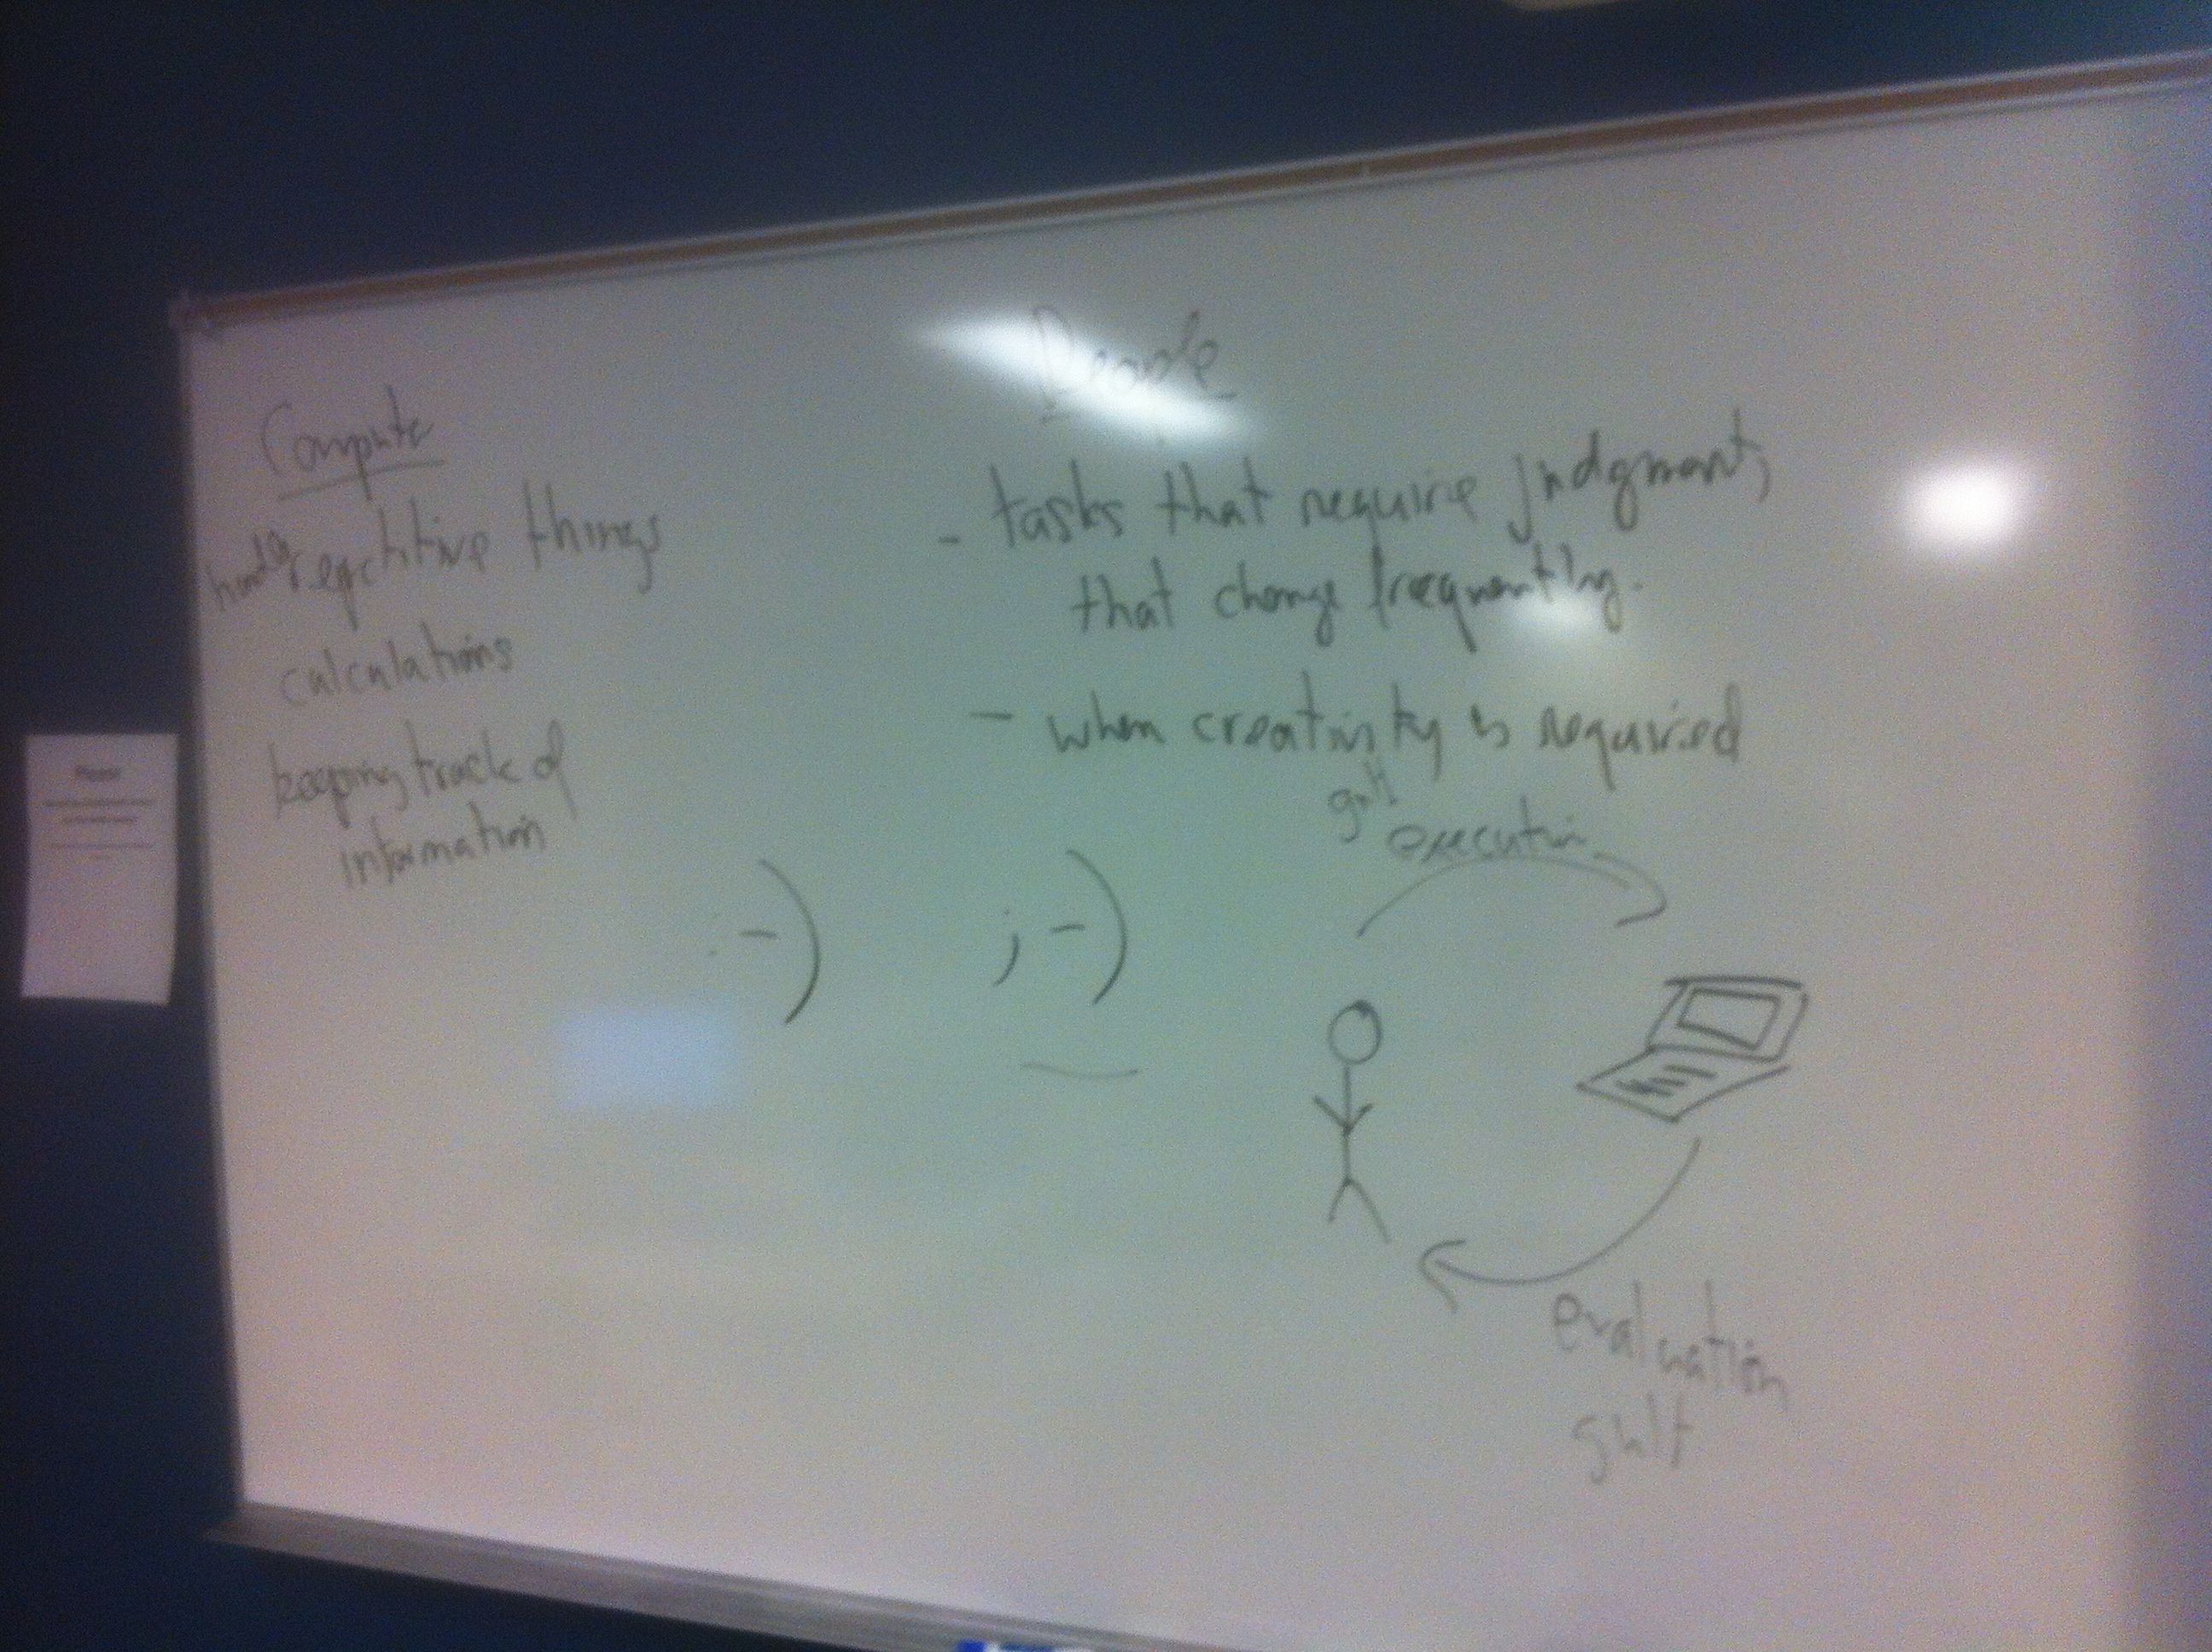 Computer
handle repetitive things
calculations
keeping track of
information
People
- tasks that require judgment,
that change frequently.
- when creativity is required
:-)
;-)
gulf
execution
evaluation
gulf